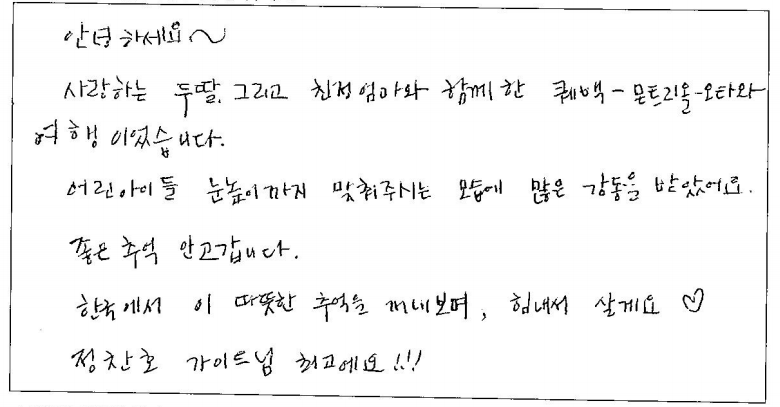 안녕하세요~
사랑하는 두딸, 그리고 친정엄마와 함께한 퀘백-몬트리올-오타와
여행이었습니다.
어린아이들 눈높이까지 맞춰주시는 모습에 많은 감동을 받았어요.
좋은 추억 안고갑니다.
한국에서 이 따뜻한 추억을 꺼내보며, 힘내서 살게요 ♡
정찬호 가이드님 최고에요!!!